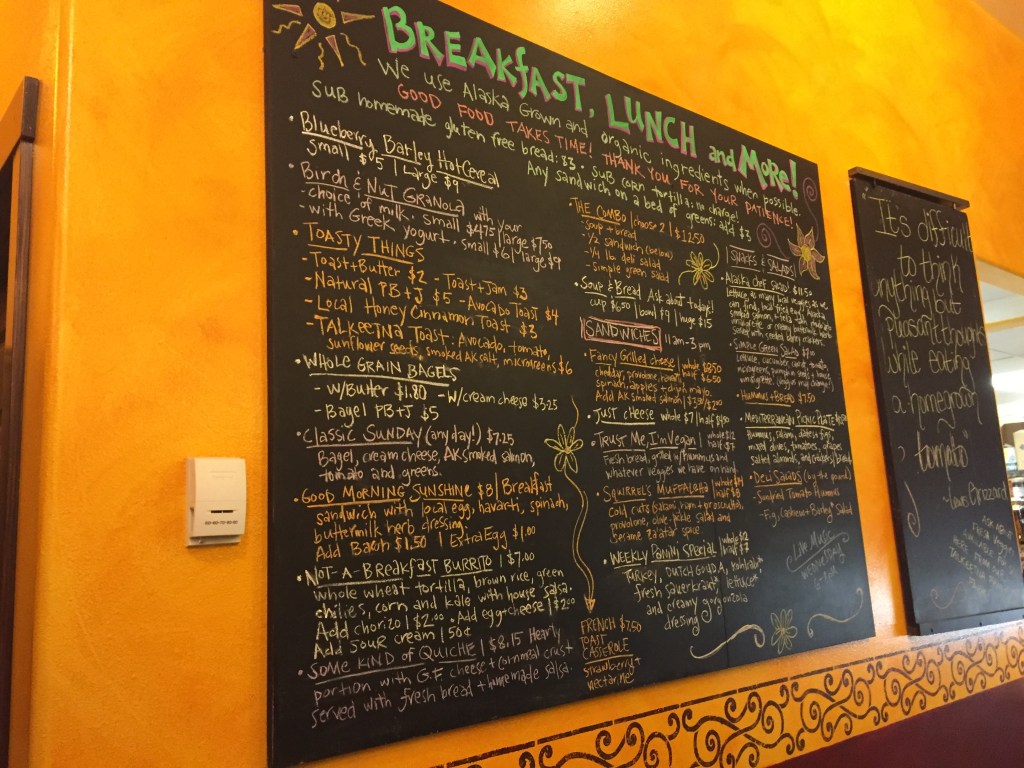 BREAKfAST, LUNCH and MORE!
We use Alaska Grown and organic ingredients when possible.
GOOD FOOD TAKES TIME! THANK YOU FOR YOUR PATIENCE!
SUB homemade gluten free bread: $3... SUB corn tortilla: no charge!
Any sandwich on a bed of greens: add $3
• Blueberry Barley Hot Cereal
small $5 | Large $9
• Birch & Nut Granola with your
- choice of milk. small $4.75 | large $7.50
- with Greek yogurt. small $6 | large $9
• TOASTY THINGS
- Toast+Butter $2 - Toast+Jam $3
- Natural PB+J $5 - Avocado Toast $4
- Local Honey Cinnamon Toast $3
- TALKEETNA Toast: Avocado, tomato,
sunflower seeds, smoked AK salt, microgreens $6
• WHOLE GRAIN BAGELS
- w/Butter $1.80 - w/cream cheese $3.25
- Bagel PB+J $5
• CLASSIC SUNDAY (any day!) $7.25
Bagel, cream cheese, AK smoked salmon,
tomato and greens.
• GOOD MORNING SUNSHINE $8 | Breakfast
sandwich with local egg, havarti, spinach,
buttermilk herb dressing.
Add Bacon $1.50 | Extra Egg $1.00
• NOT-A-BREAKfAST BURRITO | $7.00
whole wheat tortilla, brown rice, green
chilies, corn and kale with house salsa.
Add chorizo | $2.00. Add egg+cheese | $2.00
Add sour cream | 50¢
• SOME KIND OF QUICHE | $8.15 Hearty
portion with G.F cheese+cornmeal crust
served with fresh bread + homemade salsa.
• THE COMBO | choose 2 | $12.50
- Soup + bread
- 1/2 sandwich (below)
- 1/4 lb deli salad
- Simple green salad
• Soup & Bread | Ask about today!
cup $6.50 | bowl $9 | huge $15
SANDWICHES 11am-3pm
• Fancy Grilled cheese | whole $8.50
cheddar, provolone, romano, half $6.50
spinach, apples + chipotle mayo.
Add AK smoked salmon
• JUST CHEESE whole $7 | half
• TRUST ME, I'm Vegan | whole $12
Fresh bread, grilled w/hummus and half $7
whatever veggies we have on hand
• SQUIRREL'S MUFFALETTA | whole
Cold cuts (salami, ham + prosciutto), half $8
provolone, olive-pickle salad and
sesame
• WEEKLY PANINI SPECIAL | whole $12
half $7
TURKEY, DUTCH GOUDA,
fresh sauerkraut, lettuce
and creamy gorgonzola
dressing
FRENCH $7.50
TOAST
CASSEROLE
strawberry+
nectarine
SNACKS & SALADS
• Alaska Chef Salad $11.50
• Simple Green Salad
• Hummus + Bread $7.50
• MEDITERRANEAN PICNIC PLATE
Hummus, salami, dates,
mixed olives, tomatoes,
salted almonds, and
• Deli Salads (by the pound)
- Sundried Tomato Hummus
- Fig, Cashew + Barley Salad
Live Music
"It's difficult
to think
anything but
pleasant thoughts
while eating
a homegrown
tomato"
- Lewis Grizzard